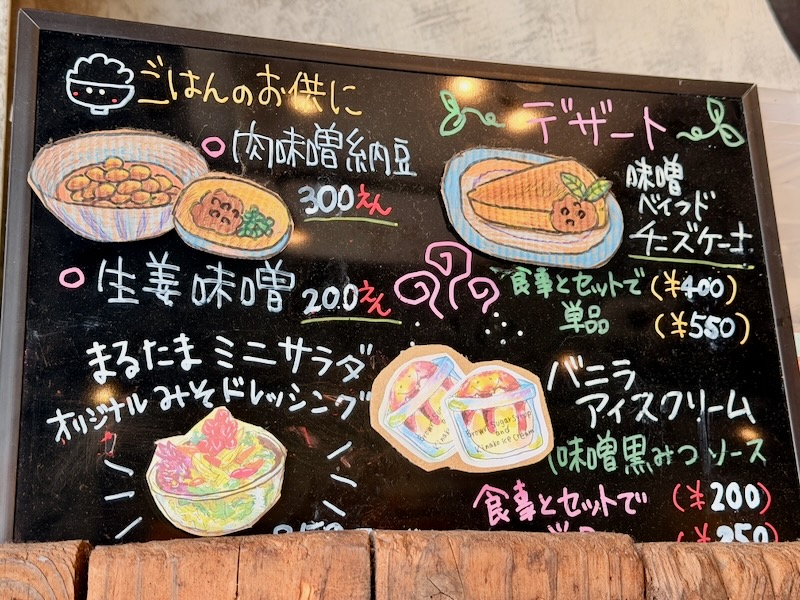 ごはんのお供に
肉味噌納豆
300えん
生姜味噌
200えん
まるたま ミニサラダ
オリジナル みそドレッシング
デザート
味噌
ベイクド
チーズケーキ
食事とセットで (¥400)
単品 (¥550)
バニラ
アイスクリーム
(味噌黒みつソース
食事とセットで (¥200)
(¥350)
brown sugar syrup
and
kinako ice cream